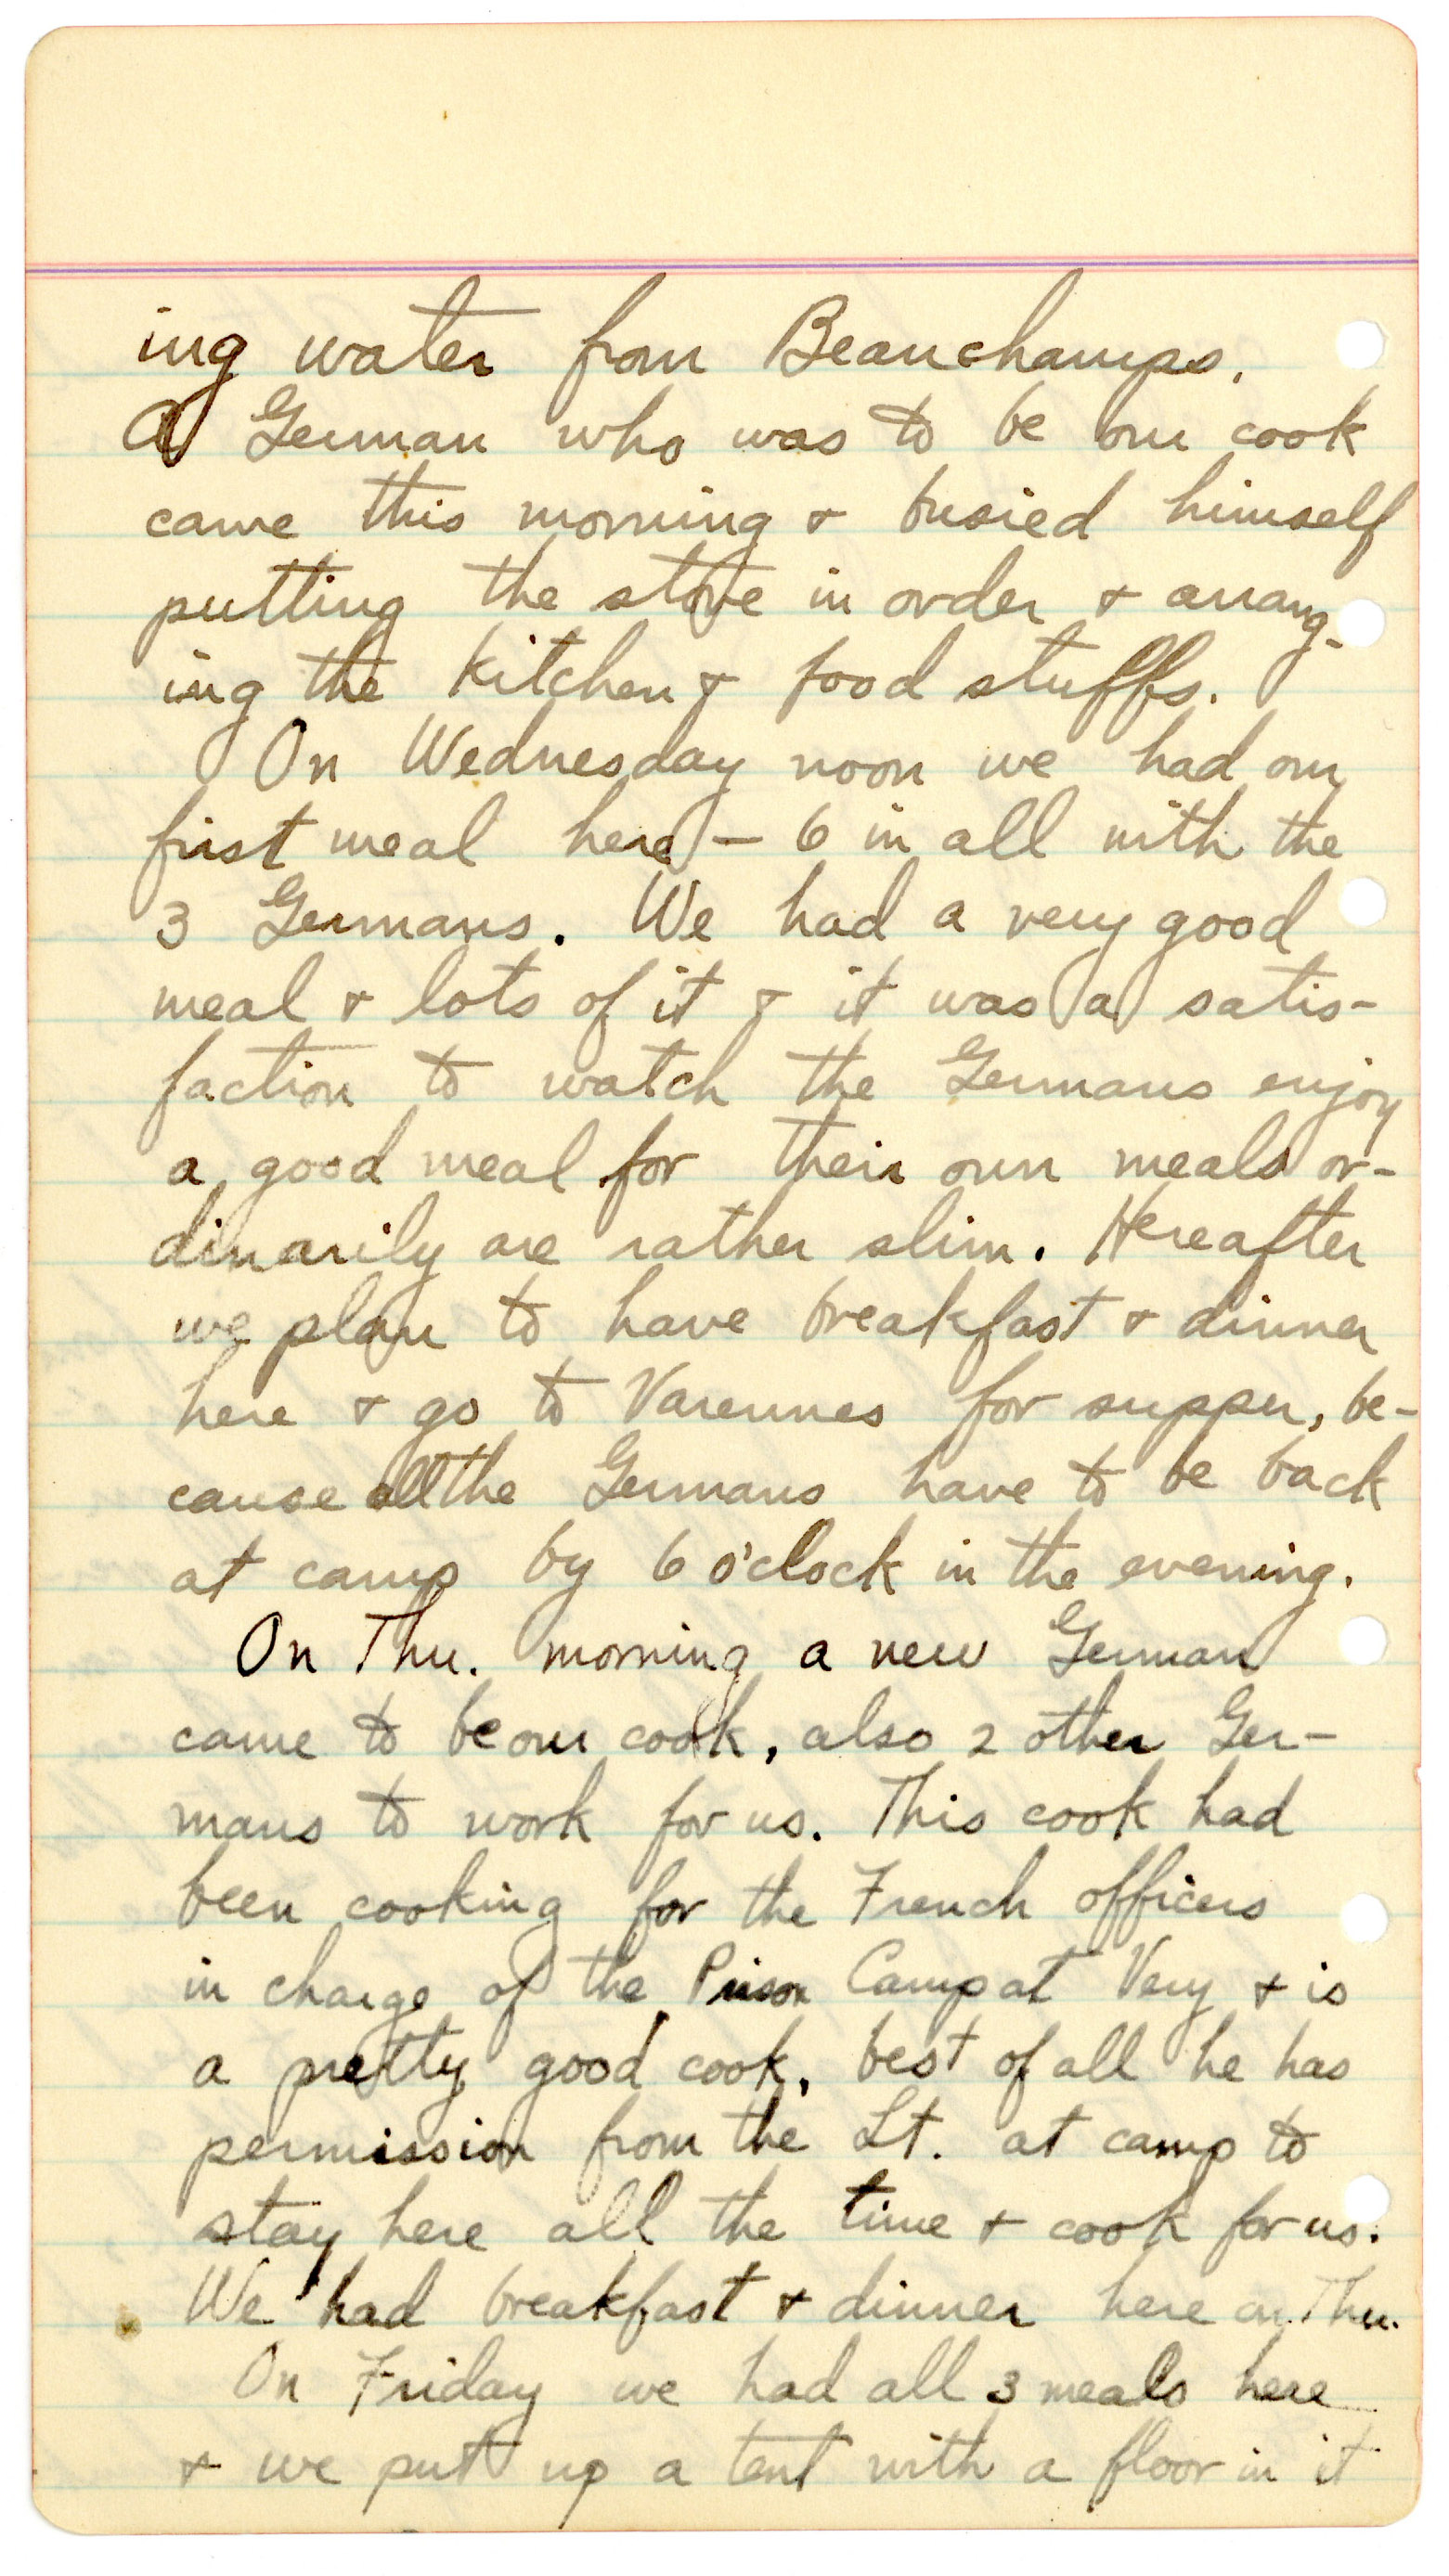 ing water from Beauchamps.
A German who was to be our cook
came this morning & busied himself
putting the stove in order & arang-
ing the kitchen & food stuffs.
On Wednesday noon we had our
first meal here — 6 in all with the
3 Germans. We had a very good
meal & lots of it & it was a satis-
faction to watch the Germans enjoy
a good meal for their own meals or-
dinarily are rather slim. Hereafter
we plan to have breakfast & dinner
here & go to Varennes for supper, be-
cause all the Germans have to be back
at camp by 6 o'clock in the evening.
On Thu. morning a new German
came to be our cook, also 2 other Ger-
mans to work for us. This cook had
been cooking for the French officers
in charge of the Prison Camp at Very & is
a pretty good cook, best of all he has
permission from the Lt. at camp to
stay here all the time & cook for us.
We had breakfast & dinner here on Thu.
On Friday we had all 3 meals here
& we put up a tent with a floor in it